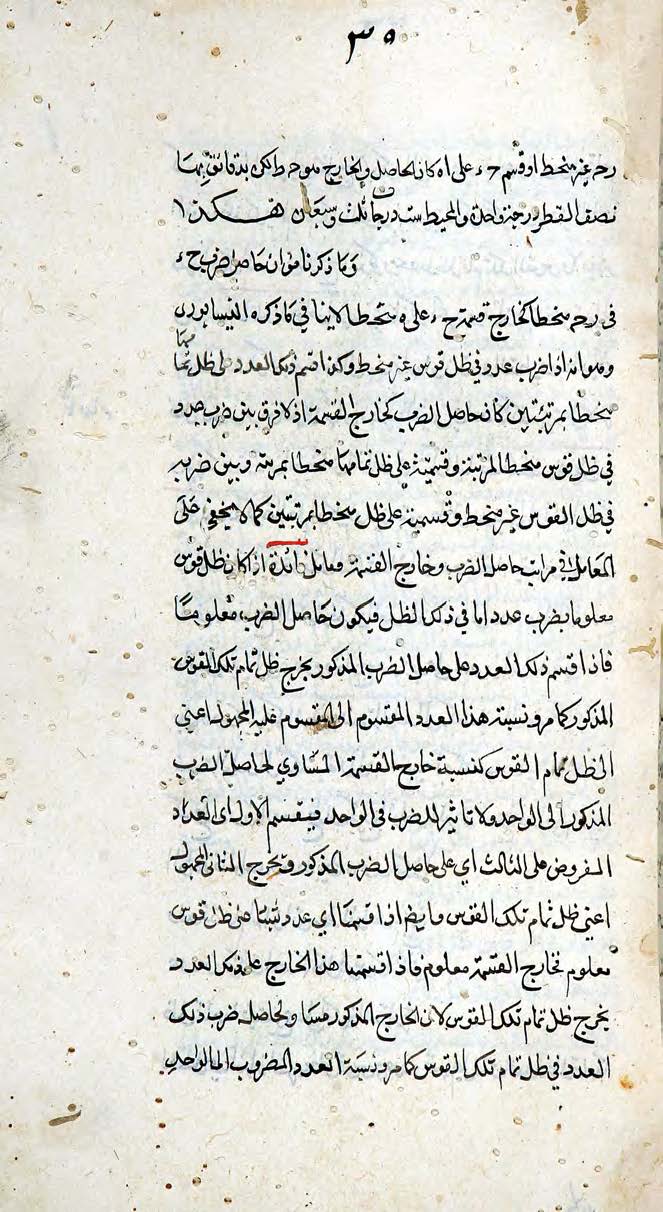 ٣٩
رحه غير منحط او قسم ح ء على ا ه كان الحاصل والخارج هو ح ط لكن بدقائق بها
نصف القطر درجة واحدة والمحيط ست درجات وسبعان هكذا
وما ذكرنا من ان حاصل ضرب ح ء
في رحه منحطا كخارج قسمة ح ء على ه منحطا لا ينافي ما ذكره النيسابوري
وهو انه اذا ضرب عدد في ظل قوس غير منحط وكذا قسم ذلك العدد على ظل تمامها
منحطا بمرتبتين كان حاصل الضرب كخارج القسمة اذ لا فرق بين ضرب عدد
في ظل قوس منحطا لمرتبة وقسمته على ظل تمامها منحطا بمرتبة وبين ضربه
في ظل القوس غير منحط وقسمته على ظل منحطا بمرتبتين كما لا يخفى على
المعامل في مراتب حاصل الضرب وخارج القسمة فائدة اذا كان ظل قوس
معلوما بضرب عدد اما في ذلك الظل فيكون حاصل الضرب معلوما
فاذا قسم ذلك العدد على حاصل الضرب المذكور يخرج ظل تمام تلك القوس
المذكور كما مر ونسبة هذا العدد المقسوم الى المقسوم عليه المجهول اعني
الظل تمام القوس كنسبة خارج القسمة المساوي لحاصل الضرب
المذكور الى الواحد ولا تاثير للضرب في الواحد فينقسم الاول اى العداد
المفروض على الثالث اي على حاصل الضرب المذكور ويخرج الثاني المجهول
اعني ظل تمام تلك القوس وايضا اذا قسمنا اي عدد شئنا على ظل قوس
معلوم فخارج القسمة معلوم فاذا قسمنا هذا الخارج على ذلك العدد
يخرج ظل تمام تلك القوس لان الخارج المذكور مساو لحاصل ضرب ذلك
العدد في ظل تمام تلك القوس كما مر ونسبة العدد المضروب الى الواحد